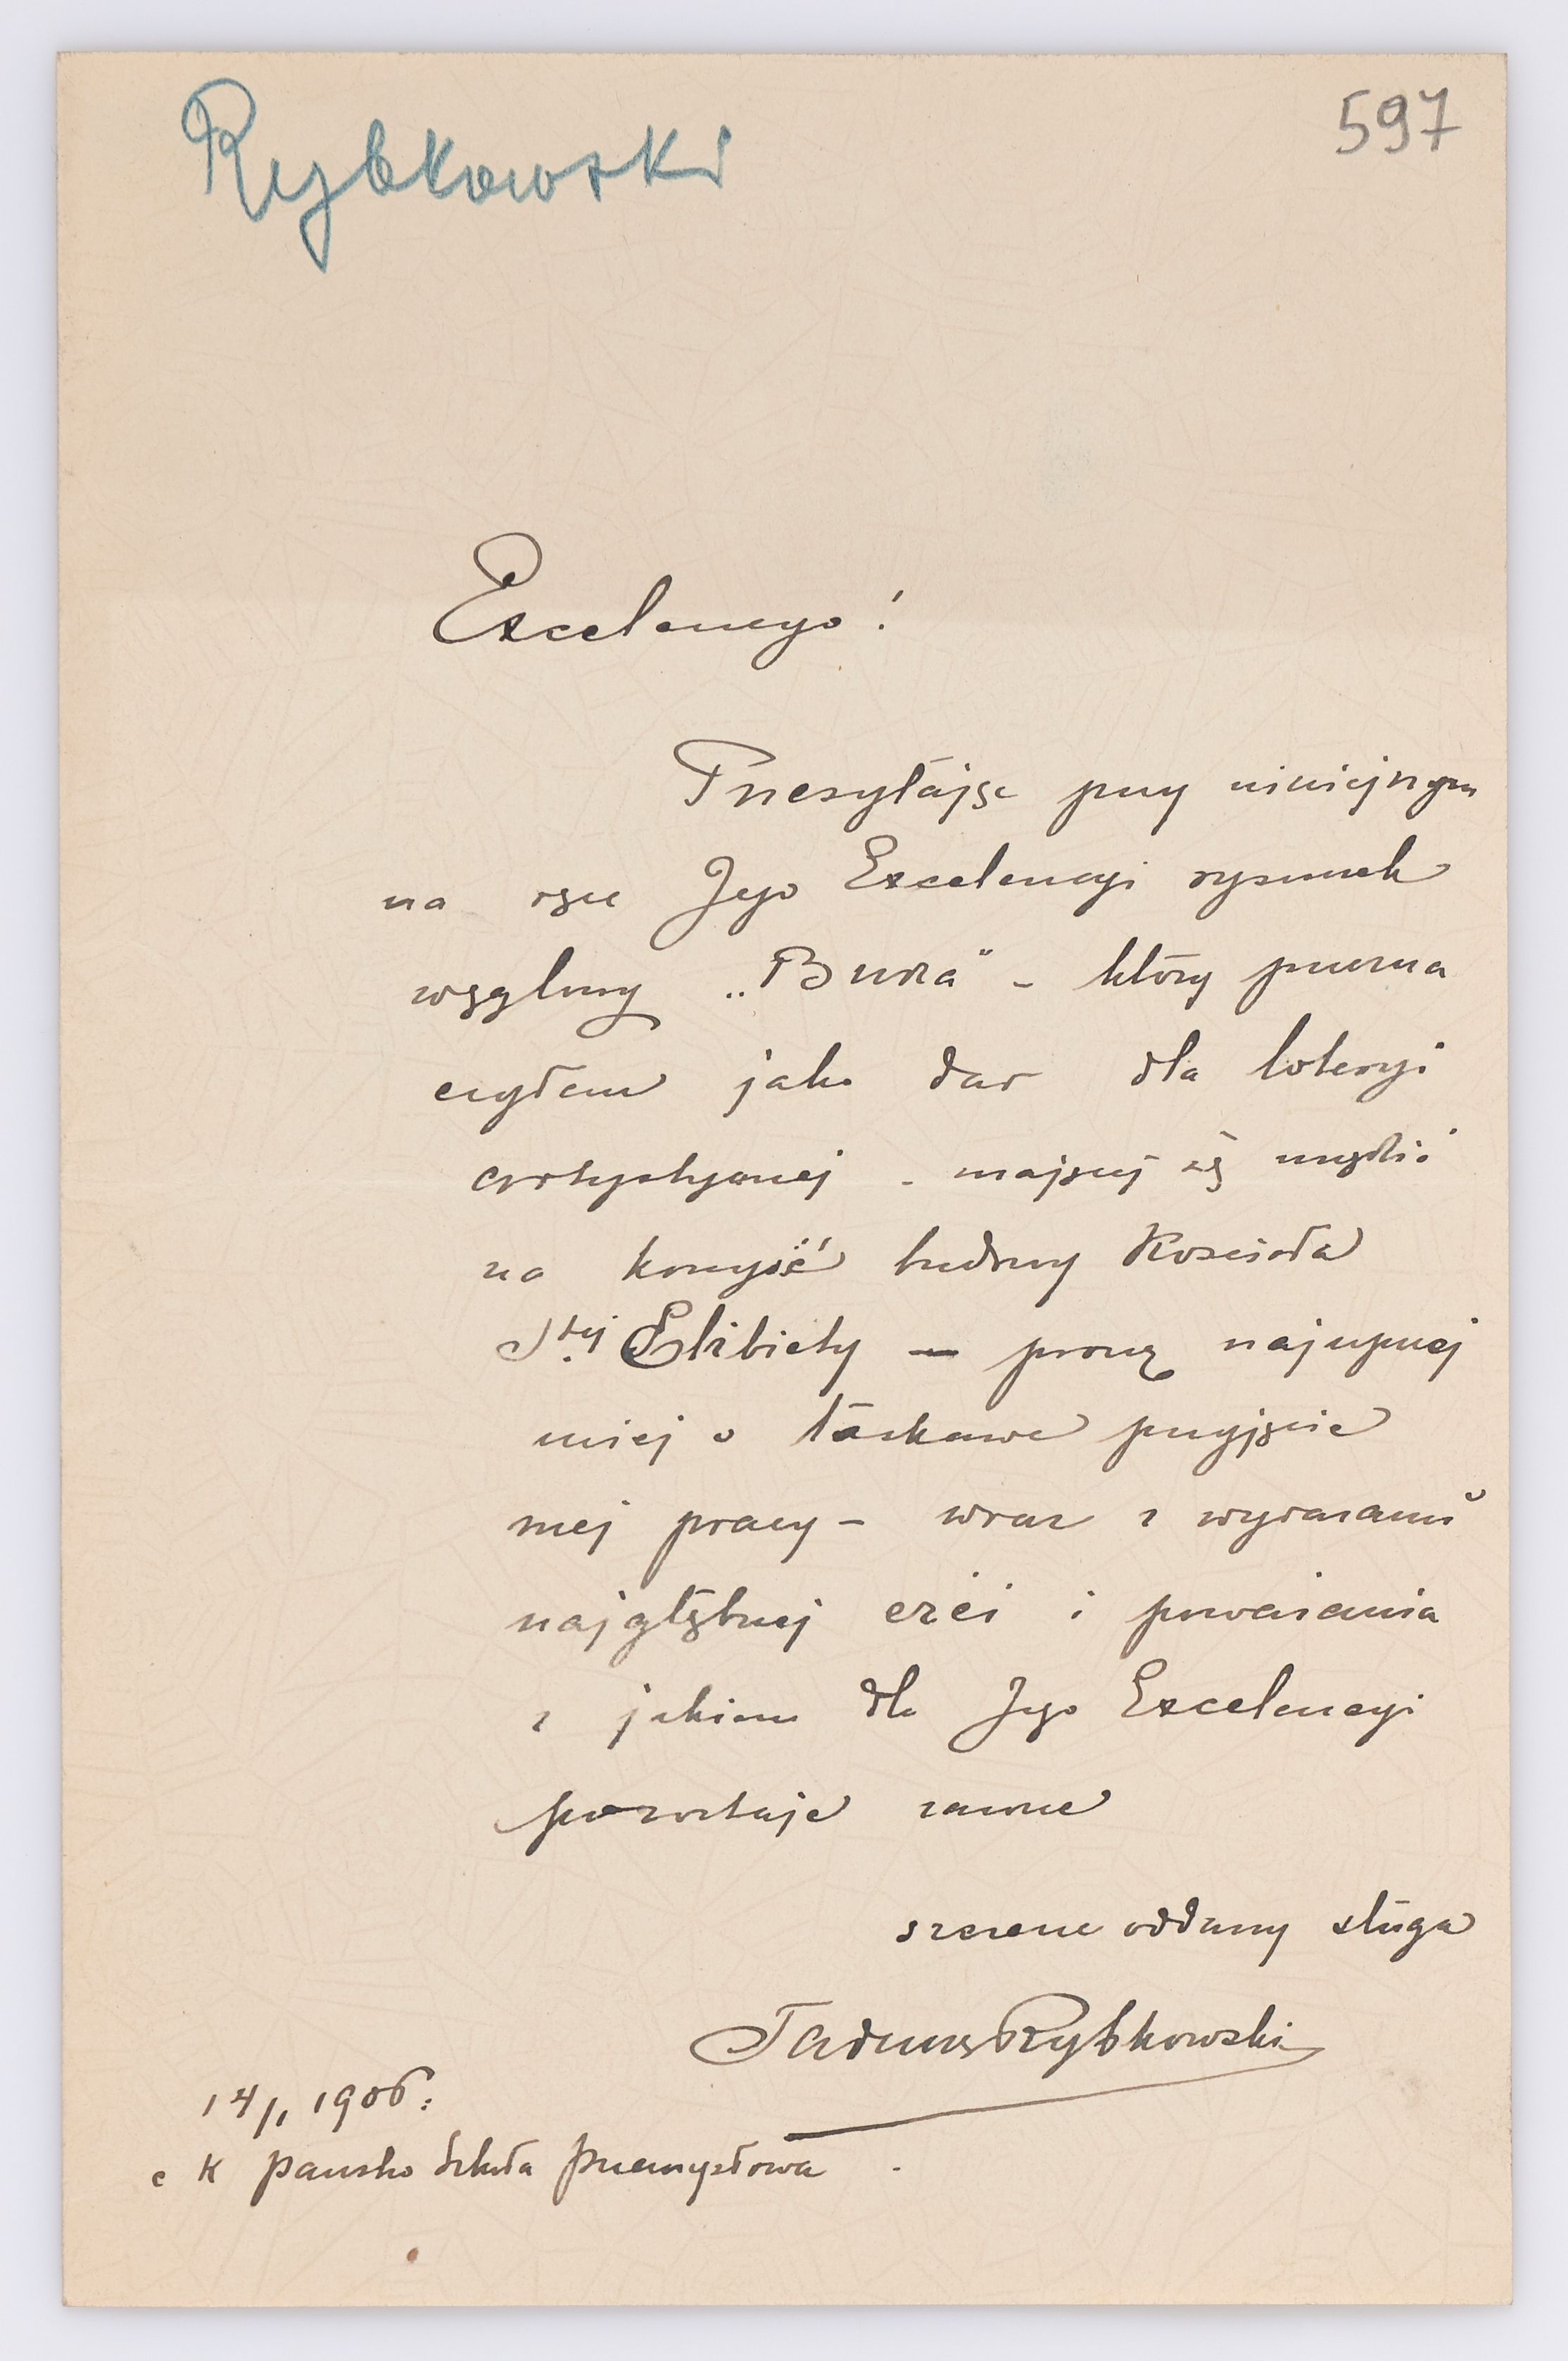 Rybkowski
597
Excelencyo!
Przesyłając przy niniejszym
na ręce Jego Excelencyi rysunek
węglowy „Burza" - który przezna
czyłem jako dar dla loteryi
artystycznej - mającej się urządzić
na korzyść budowy Kościoła
S.tej Elżbiety - proszę najuprzej
miej o łaskawe przyjęcie
mej pracy - wraz z wyrazami
najgłębszej czci i poważania
z jakiem dla Jego Excelencyi
pozostaje zawsze
szczerze oddany sługa
Tadeusz Rybkowski
14/1 1906.
c K państ Szkoła przemysłowa.